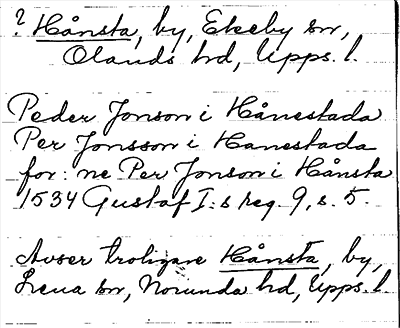 ? Hånsta, by, Ekeby sn,
Olands hd, Upps. l.
Peder Jonson i Hånestada
Per Jonsson i Hanestada
for: ne Per Jonson i Hånsta
1534 Gustaf I:s reg. 9, s. 5.
Avser troligare Hånsta, by,
Lena sn, Norunda hd, Upps. l.